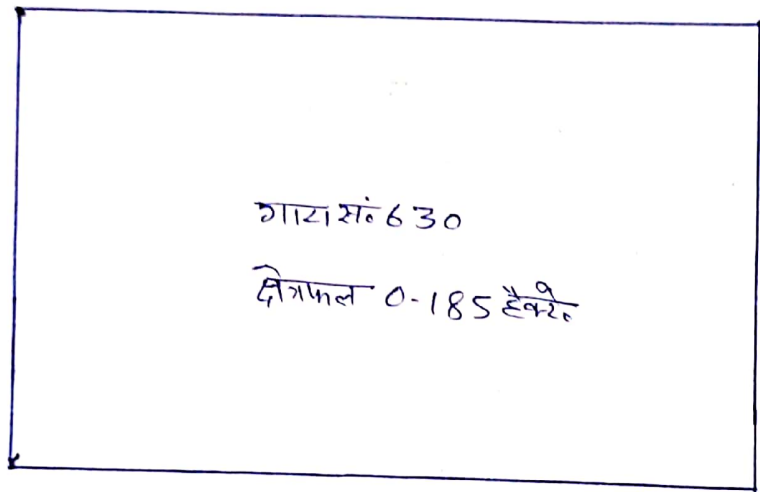 गाटा सं० 630
क्षेत्रफल 0-185 हैक्टे०